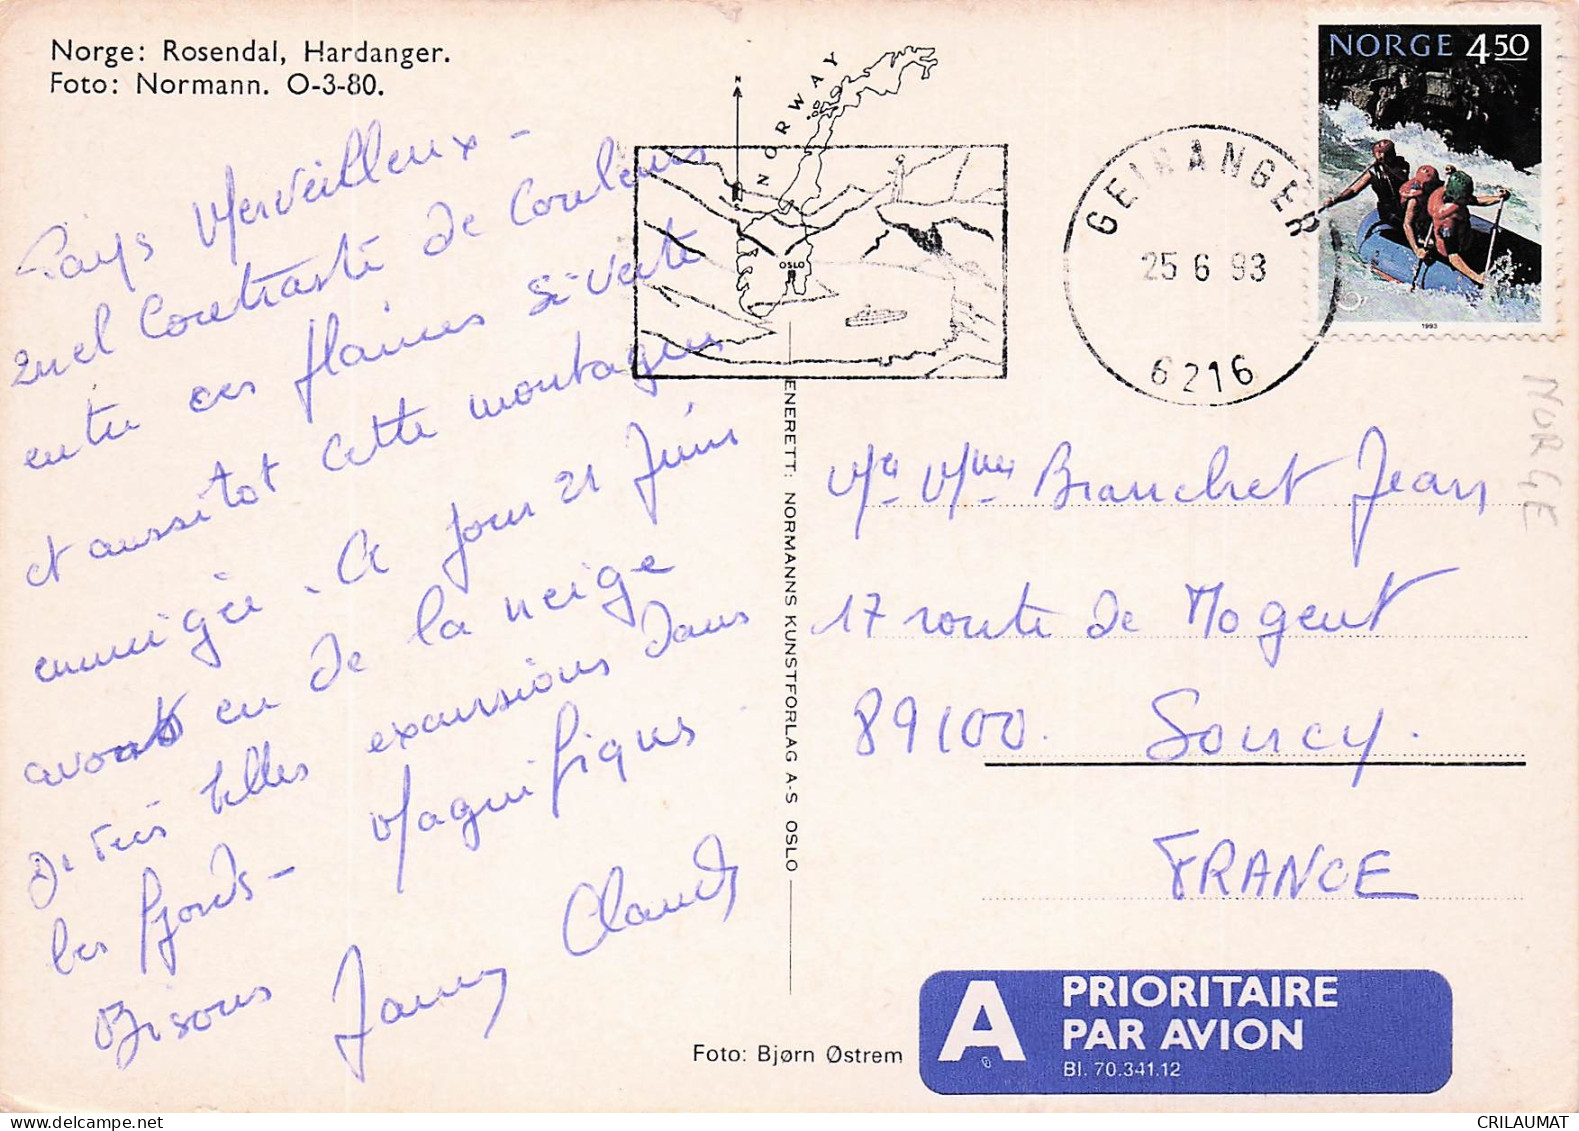 Norge: Rosendal, Hardanger.
Foto: Normann. O-3-80.
Pays Merveilleux -
Quel Contraste de Couleurs
entre ces plaines si verte
et aussitot cette montagne
enneigée. Ce jour 21 Juin
avons eu de la neige
De très belles excursions dans
les fjords - Magnifiques
Bisous Janny Claude
NORWAY
N
OSLO
GEIRANGER
25 6 93
6216
NORGE 450
1993
NORGE
ENERETT: NORMANNS KUNSTFORLAG A-S OSLO
Mr Mme Branchet Jean
17 route de Nogent
89100 Soucy.
FRANCE
A PRIORITAIRE
PAR AVION
Bl. 70.341.12
Foto: Bjørn Østrem
CRILAUMAT